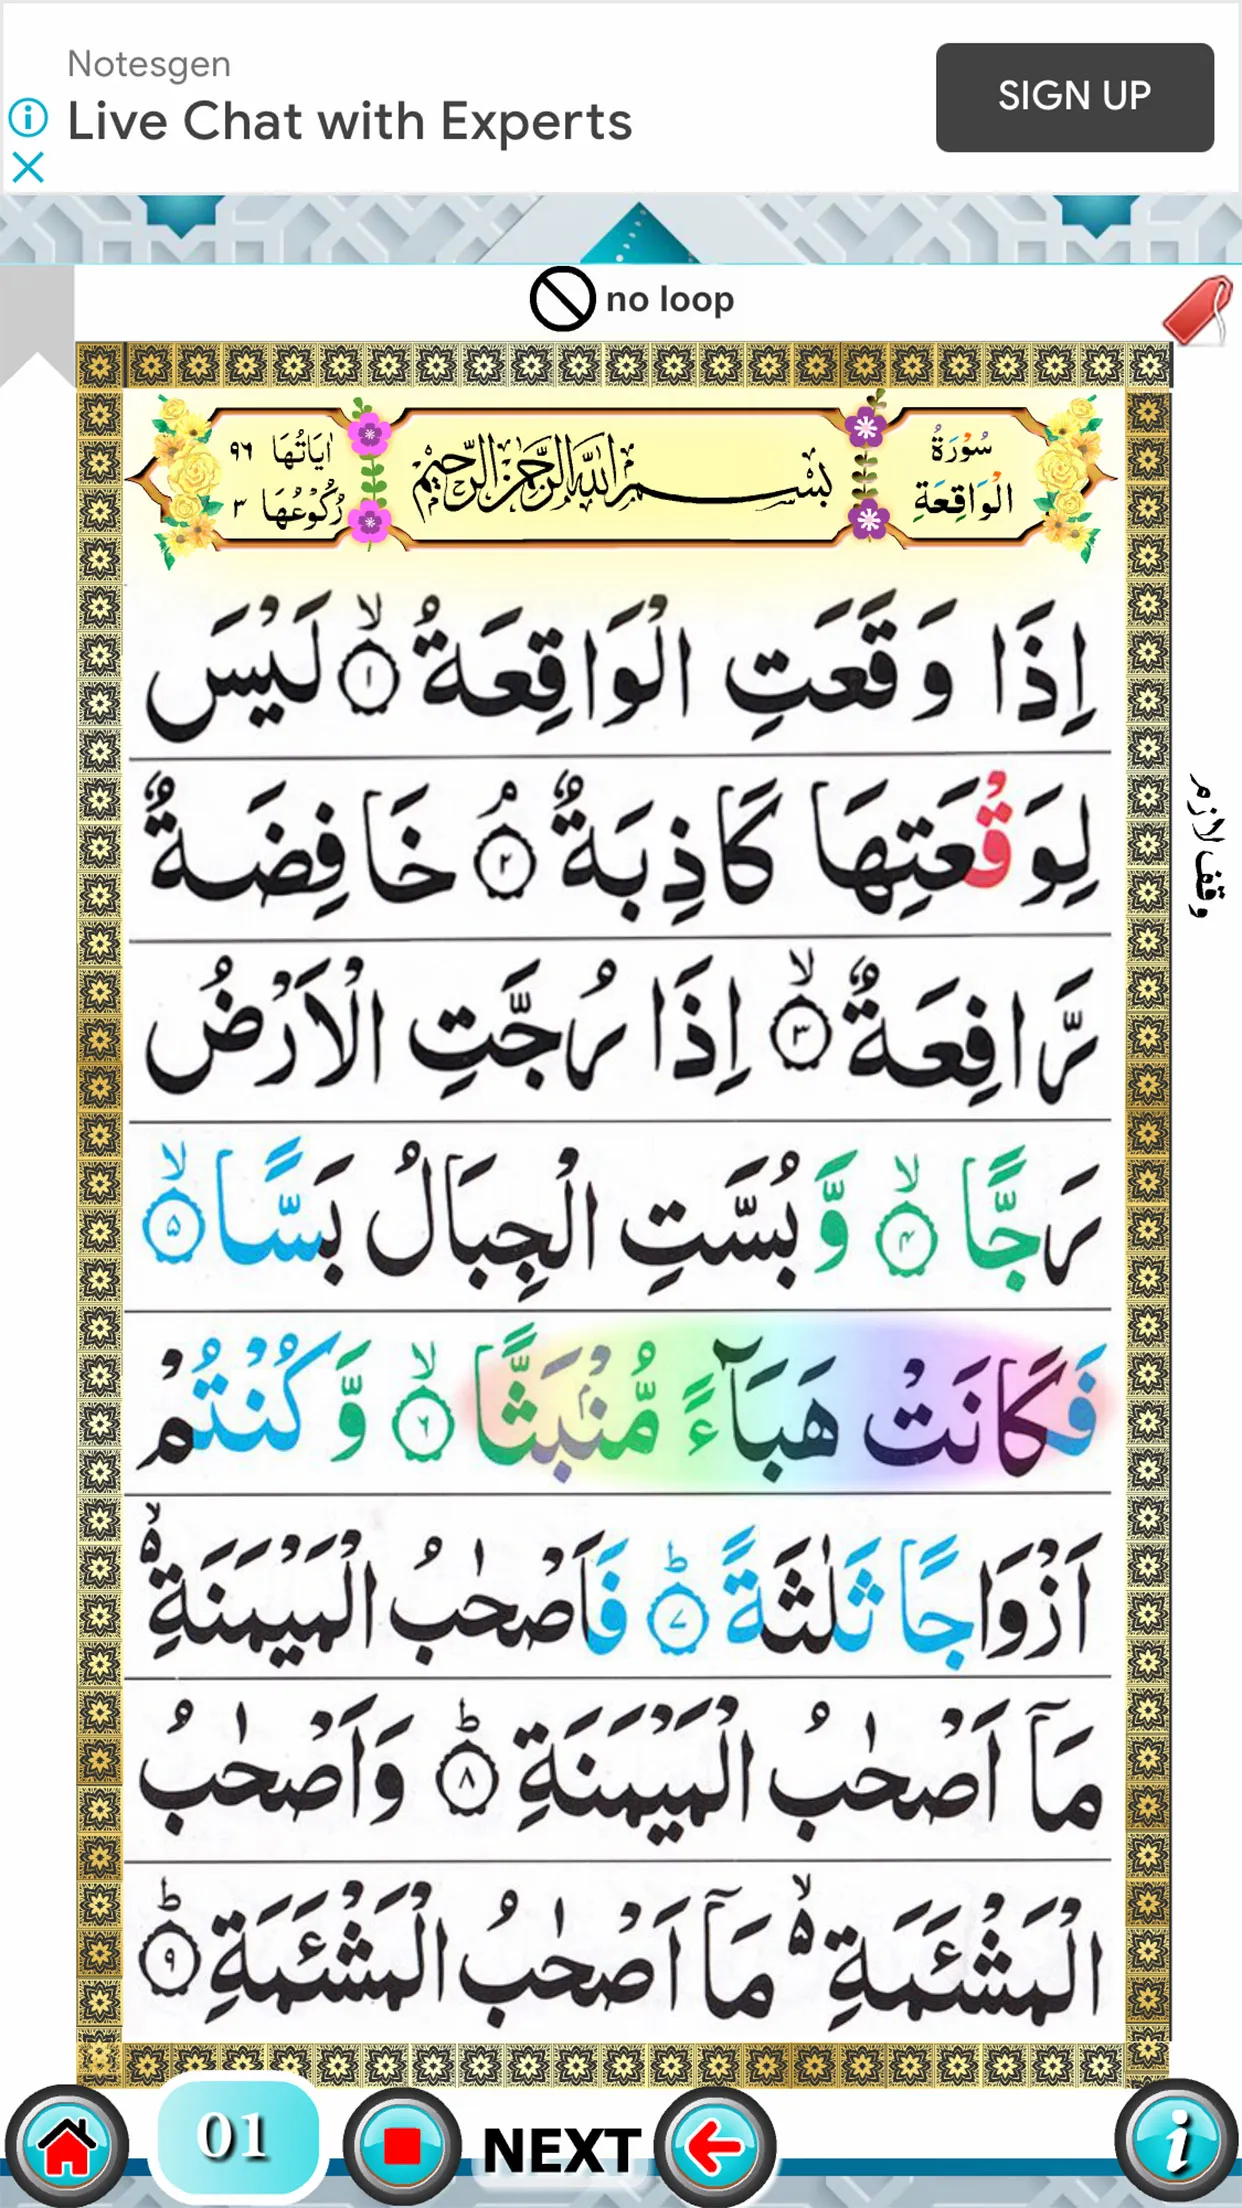 Notesgen
Live Chat with Experts
SIGN UP
no loop
سُوْرَةُ الْوَاقِعَةِ
بِسْمِ اللّٰهِ الرَّحْمٰنِ الرَّحِيْمِ
اٰيَاتُهَا ٩٦
رُكُوْعُهَا ٣
اِذَا وَقَعَتِ الْوَاقِعَةُ ۙ﴿۱﴾ لَيْسَ
لِوَقْعَتِهَا كَاذِبَةٌ ۘ﴿۲﴾ خَافِضَةٌ
وقف لازم
رَّافِعَةٌ ۙ﴿۳﴾ اِذَا رُجَّتِ الْاَرْضُ
رَجًّا ۙ﴿۴﴾ وَّ بُسَّتِ الْجِبَالُ بَسًّا ۙ﴿۵﴾
فَكَانَتْ هَبَآءً مُّنْۢبَثًّا ۙ﴿۶﴾ وَّ كُنْتُمْ
اَزْوَاجًا ثَلٰثَةً ؕ﴿۷﴾ فَاَصْحٰبُ الْمَيْمَنَةِ ۙ۬
مَاۤ اَصْحٰبُ الْمَيْمَنَةِ ؕ﴿۸﴾ وَاَصْحٰبُ
الْمَشْـَٔمَةِ ۙ۬ مَاۤ اَصْحٰبُ الْمَشْـَٔمَةِ ؕ﴿۹﴾
01
NEXT
i